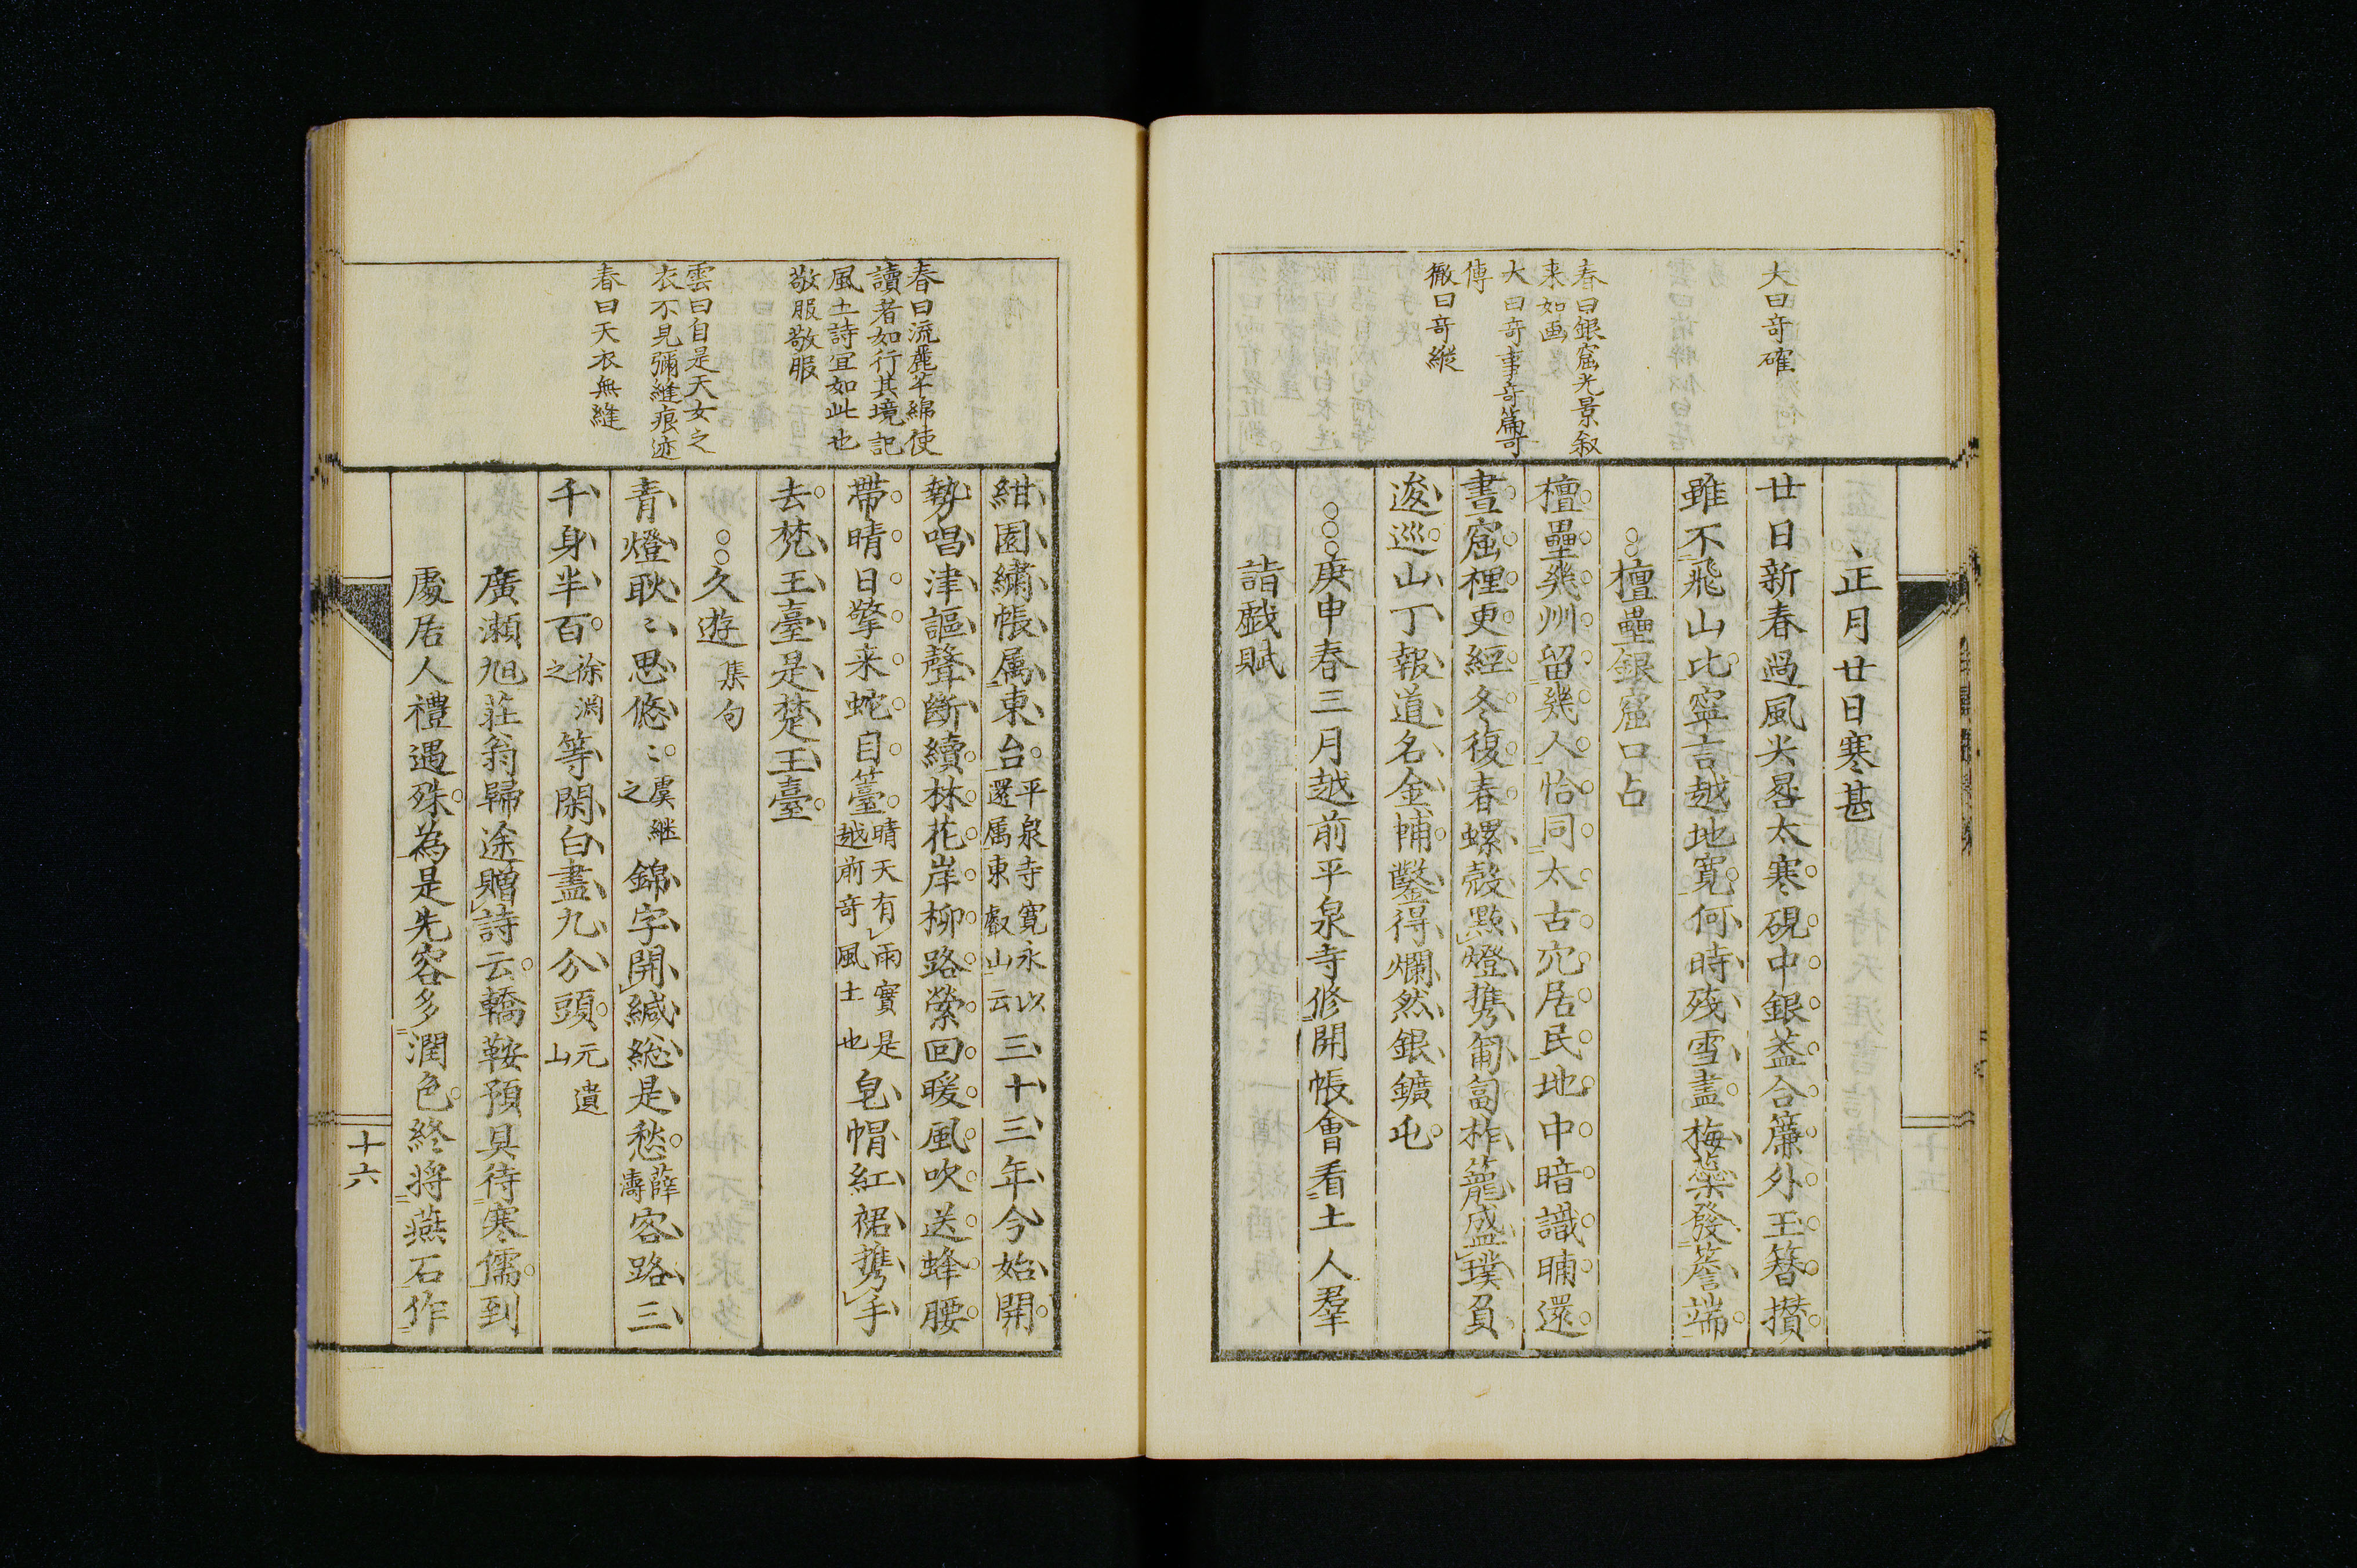 大曰奇確
春曰銀窟光景叙
来如画
大曰奇事奇篇奇
傳
徹曰奇縦
正月廿日寒甚
廿日新春過風光畧太寒硯中銀葢合簾外玉簪攅
雖不飛山比寧言越地寛何時残雪盡梅蘂發簷端
檀疊銀窟口占
檀疊幾州留幾人恰同太古穴居民地中暗識晡還
晝窟裡更經冬復春螺殻點燈携匍匐柞籠盛璞負
逡巡山丁報道名金輔鑿得爛然銀鑛屯
庚申春三月越前平泉寺修開帳會看土人羣
詣戯賦
春曰流麗芊綿使
讀者如行其境記
風土詩宜如此也
敬服敬服
雲曰自是天女之
衣不見彌縫痕迹
春曰天衣無縫
紺園繍帳属東台平泉寺寛永以
還属東叡山云三十三年今始開
勢唱津謳聲斷續林花岸柳路縈回暖風吹送蜂腰
帶晴日擎来蛇目簦晴天有雨寳是
越前奇風土也皂帽紅裙携手
去梵王臺是楚王臺
久遊 集句
青燈耿〻思悠〻虞継
之錦字開緘総是愁薛
濤客路三
千身半百徐渕
之等閑白盡九分頭元遺
山
廣瀬旭荘翁歸途贈詩云轎鞍預具待寒儒到
處居人禮遇殊為是先容多潤色終将燕石作
十六